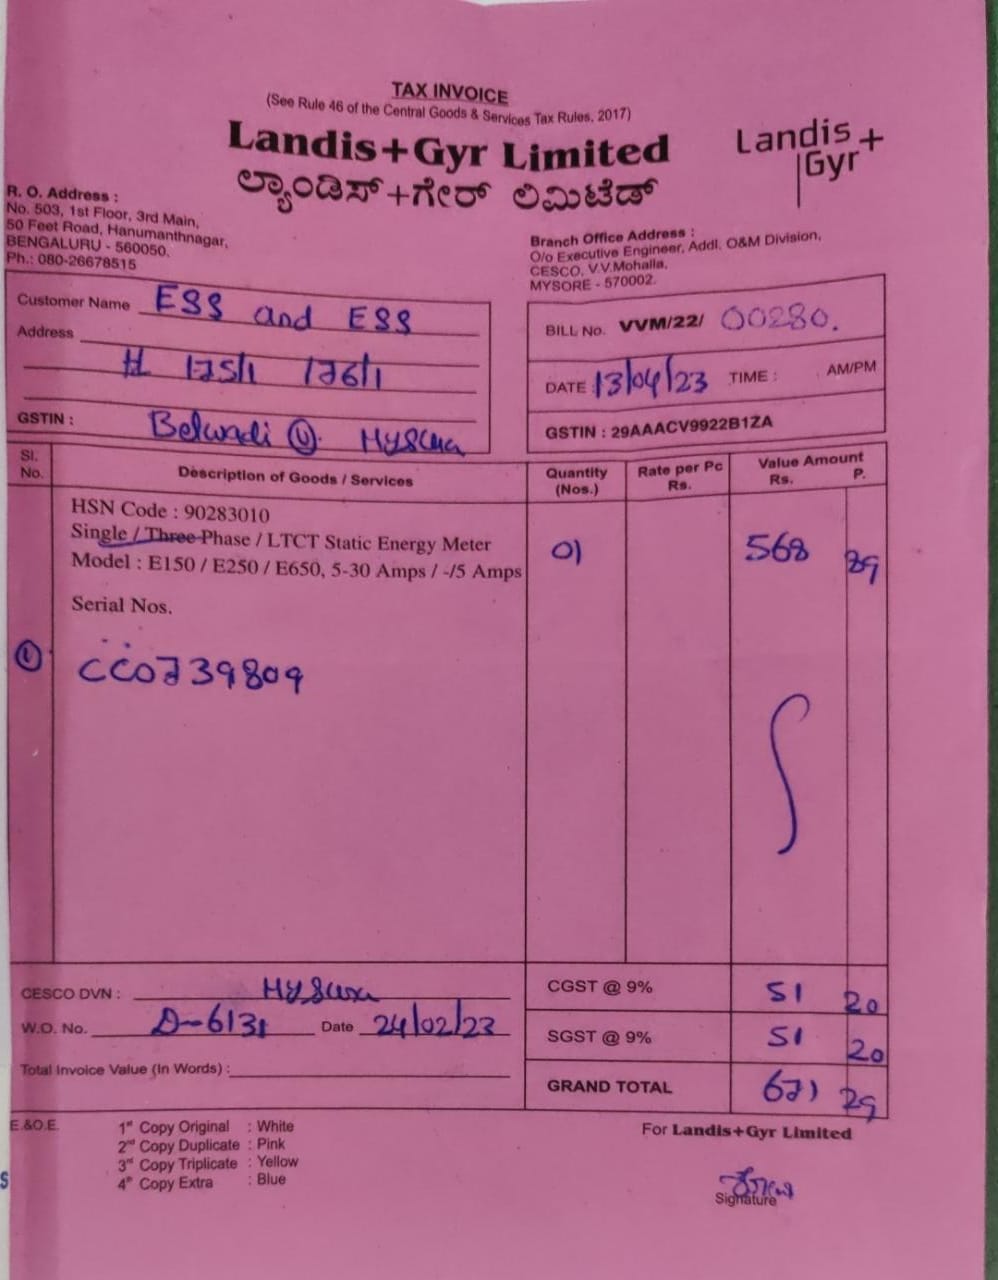 TAX INVOICE
(See Rule 46 of the Central Goods & Services Tax Rules, 2017)
Landis+Gyr Limited
ಲ್ಯಾಂಡಿಸ್+ಗೇರ್ ಲಿಮಿಟೆಡ್
Landis+
Gyr
R. O. Address :
No. 503, 1st Floor, 3rd Main,
50 Feet Road, Hanumanthnagar,
BENGALURU - 560050.
Ph.: 080-26678515
Branch Office Address :
O/o Executive Engineer, Addl. O&M Division,
CESCO, V.V.Mohalla,
MYSORE - 570002.
Customer Name ESS and ESS
Address
# 175/1 176/1
GSTIN : Belwadi
BILL No. VVM/22/ 00280.
DATE 13/04/23 TIME : AM/PM
GSTIN : 29AAACV9922B1ZA
Sl. No. Description of Goods / Services Quantity (Nos.) Rate per Pc Rs. Value Amount Rs. P.
HSN Code : 90283010
Single / Three Phase / LTCT Static Energy Meter 01 568 89
Model : E150 / E250 / E650, 5-30 Amps / -/5 Amps
Serial Nos.
① CC0739809
CESCO DVN :
W.O. No. D-6131 Date 24/02/23
Total Invoice Value (In Words) :
CGST @ 9% 51 20
SGST @ 9% 51 20
GRAND TOTAL 671 29
E.&O.E.
1st Copy Original : White
2nd Copy Duplicate : Pink
3rd Copy Triplicate : Yellow
4th Copy Extra : Blue
For Landis+Gyr Limited
Signature